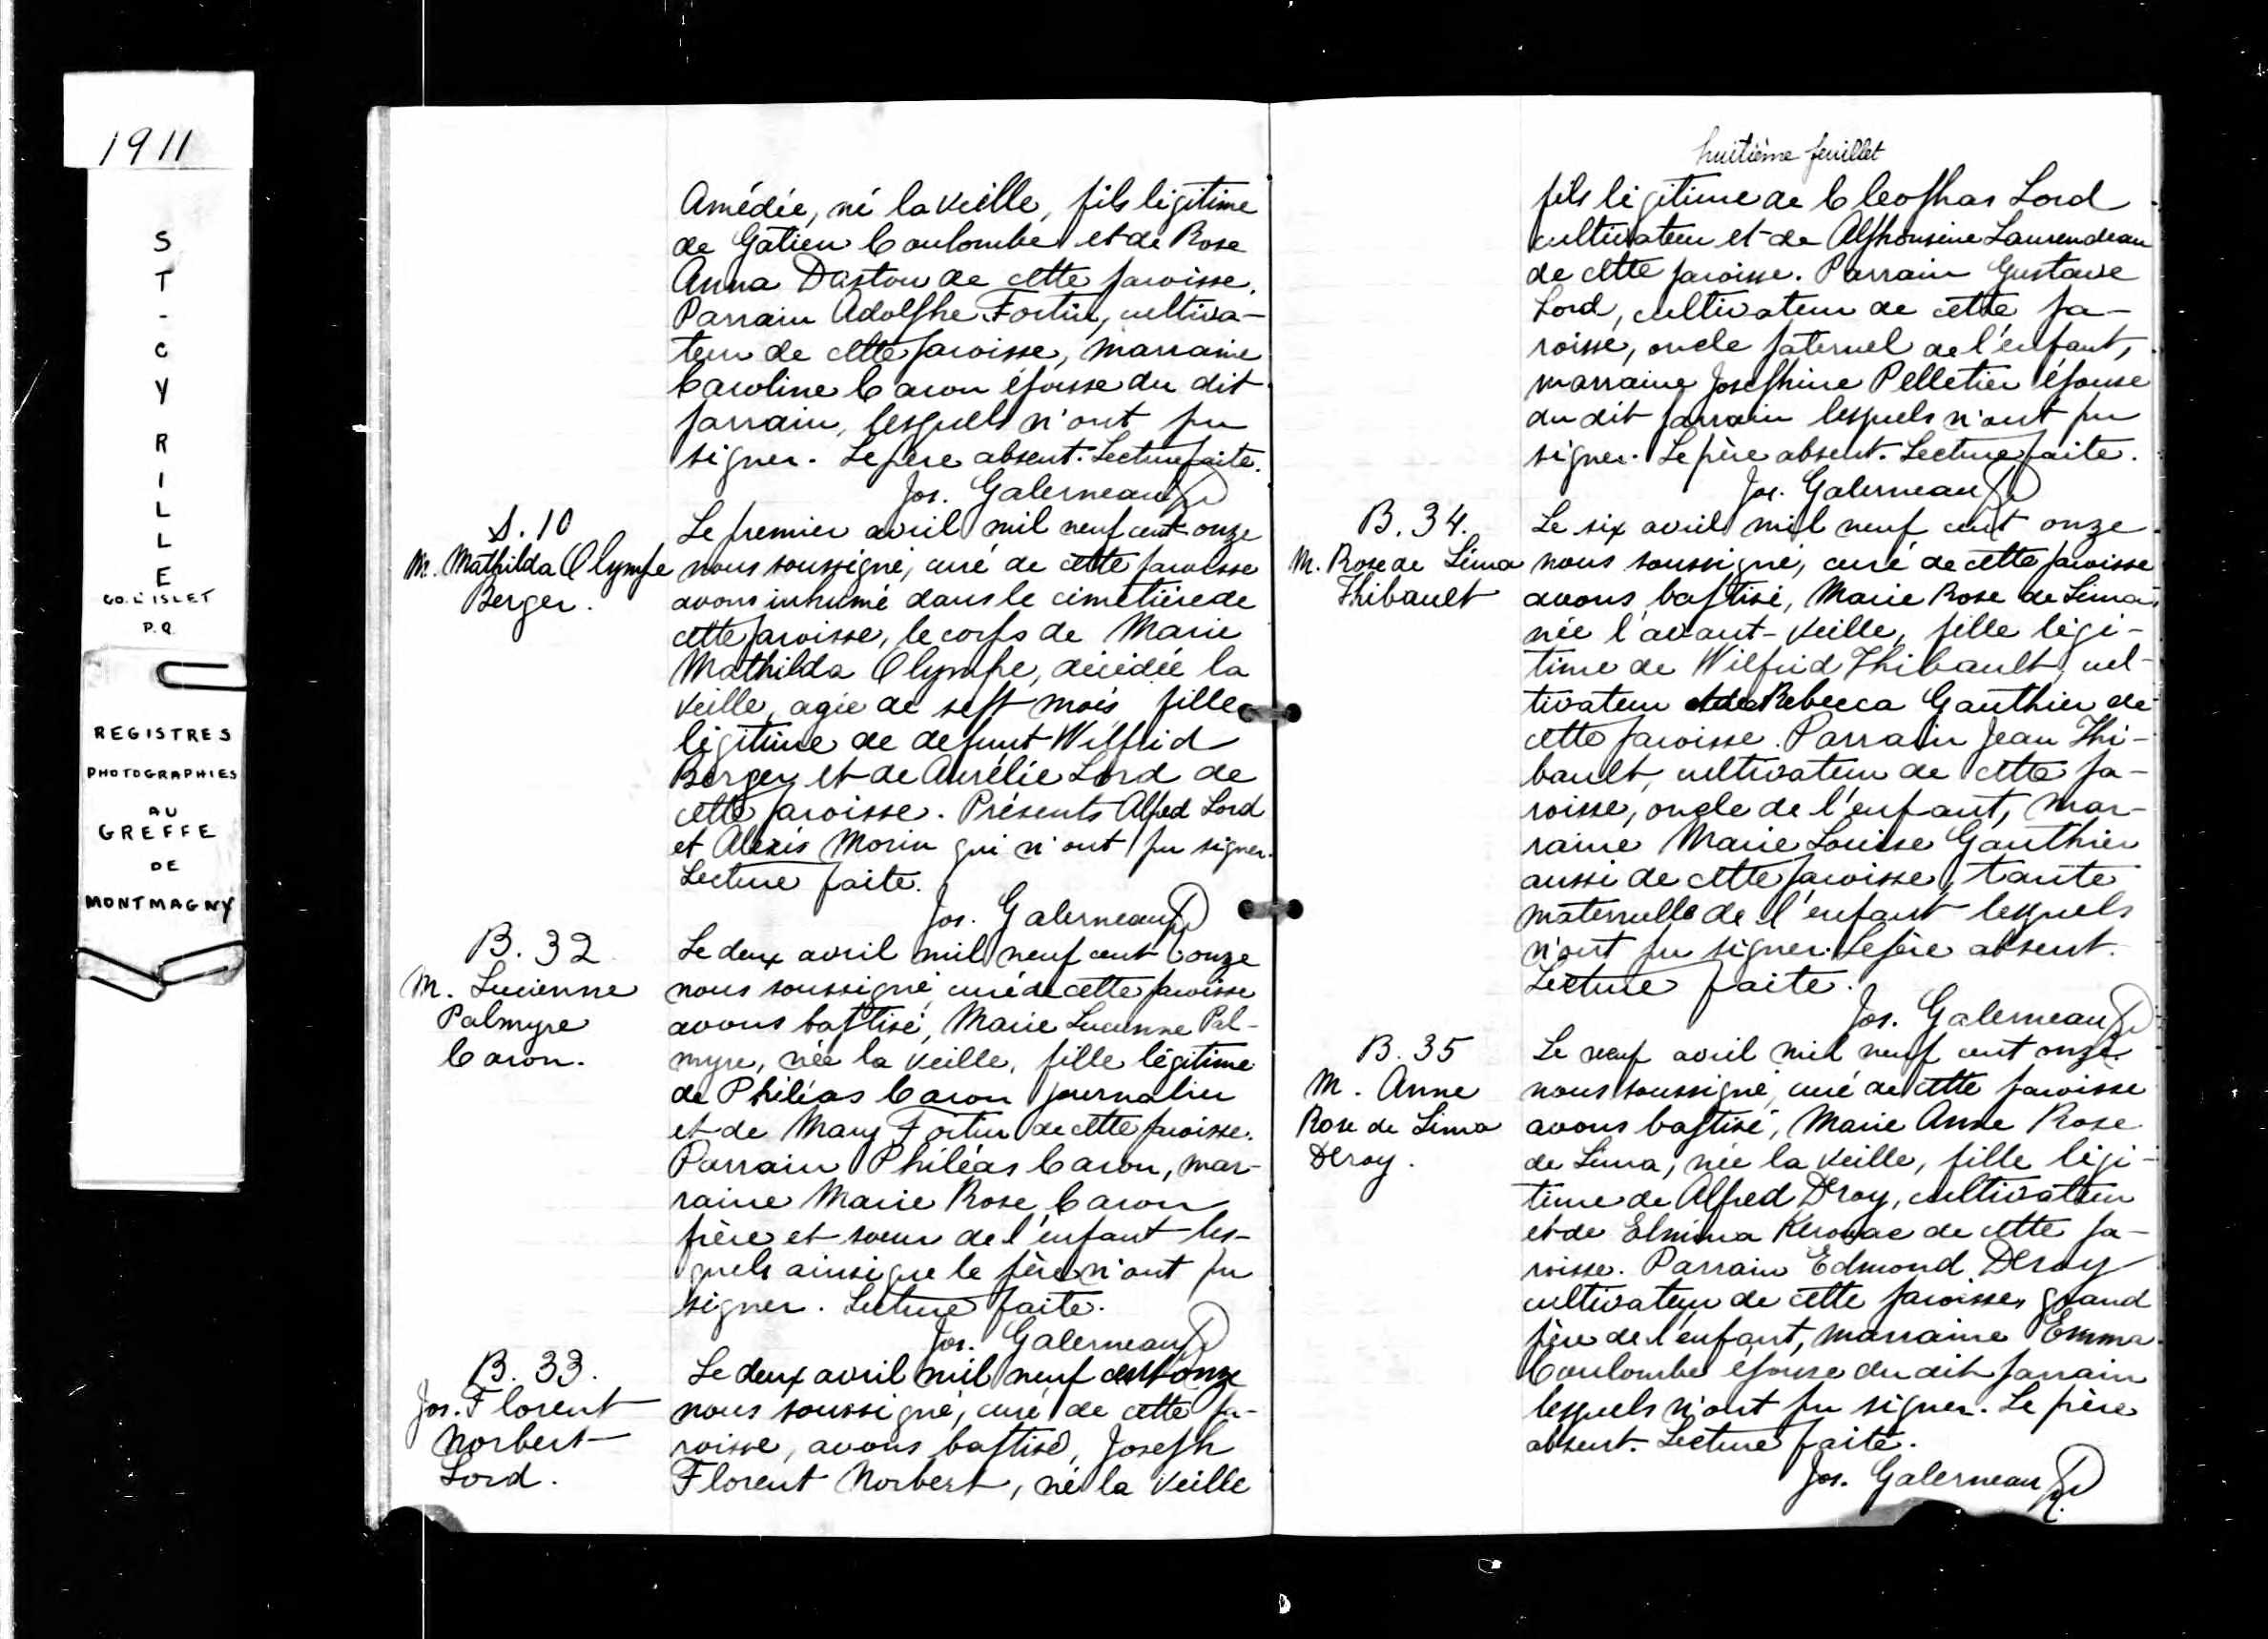 1911
S
T
-
C
Y
R
I
L
L
E
CO. L'ISLET
P.Q.
REGISTRES
PHOTOGRAPHIES
AU
GREFFE
DE
MONTMAGNY
Amédée, né la veille, fils légitime
de Gatien Coulombe et de Rose
Anna Daston de cette paroisse.
Parrain Adolphe Fortin, cultiva-
teur de cette paroisse, marraine
Caroline Caron épouse du dit
parrain, lesquels n'ont pu
signer. Le père absent. Lecture faite.
Jos. Galerneau Ptr
S. 10
M. Mathilda Olympe
Berger.
Le premier avril mil neuf cent onze
nous soussigné, curé de cette paroisse
avons inhumé dans le cimetière de
cette paroisse, le corps de Marie
Mathilda Olympe, décédée la
veille, agée de sept mois, fille
légitime de defunt Wilfrid
Berger et de Aurélie Lord de
cette paroisse. Présents Alfred Lord
et Alexis Morin qui n'ont pu signer.
Lecture faite.
Jos. Galerneau Ptr
B. 32
M. Lucienne
Palmyre
Caron.
Le deux avril mil neuf cent onze
nous soussigné, curé de cette paroisse
avons baptisé, Marie Lucienne Pal-
myre, née la veille, fille légitime
de Philéas Caron journalier
et de Mary Fortin de cette paroisse.
Parrain Philéas Caron, mar-
raine Marie Rose Caron
frère et soeur de l'enfant les-
quels ainsi que le père n'ont pu
signer. Lecture faite.
Jos. Galerneau Ptr
B. 33.
Jos. Florent
Norbert
Lord.
Le deux avril mil neuf cent onze
nous soussigné, curé de cette pa-
roisse, avons baptisé, Joseph
Florent Norbert, né la veille
huitième feuillet
fils légitime de Cleophas Lord
cultivateur et de Alphonsine Laurendeau
de cette paroisse. Parrain Gustave
Lord, cultivateur de cette pa-
roisse, oncle paternel de l'enfant,
marraine Josephine Pelletier épouse
du dit parrain lesquels n'ont pu
signer. Le père absent. Lecture faite.
Jos. Galerneau Ptr
B. 34.
M. Rose de Lima
Thibault
Le six avril mil neuf cent onze
nous soussigné, curé de cette paroisse
avons baptisé, Marie Rose de Lima,
née l'avant-veille, fille légi-
time de Wilfrid Thibault, cul-
tivateur et de Rebecca Gauthier de
cette paroisse. Parrain Jean Thi-
bault, cultivateur de cette pa-
roisse, oncle de l'enfant, mar-
raine Marie Louise Gauthier
aussi de cette paroisse, tante
maternelle de l'enfant lesquels
n'ont pu signer. Le père absent.
Lecture faite.
Jos. Galerneau Ptr
B. 35
M. Anne
Rose de Lima
Deroy.
Le neuf avril mil neuf cent onze
nous soussigné, curé de cette paroisse
avons baptisé, Marie Anne Rose
de Lima, née la veille, fille légi-
time de Alfred Deroy, cultivateur
et de Elmina Kerouac de cette pa-
roisse. Parrain Edmond Deroy
cultivateur de cette paroisse, grand
père de l'enfant, marraine Emma
Coulombe épouse du dit parrain
lesquels n'ont pu signer. Le père
absent. Lecture faite.
Jos. Galerneau Ptr